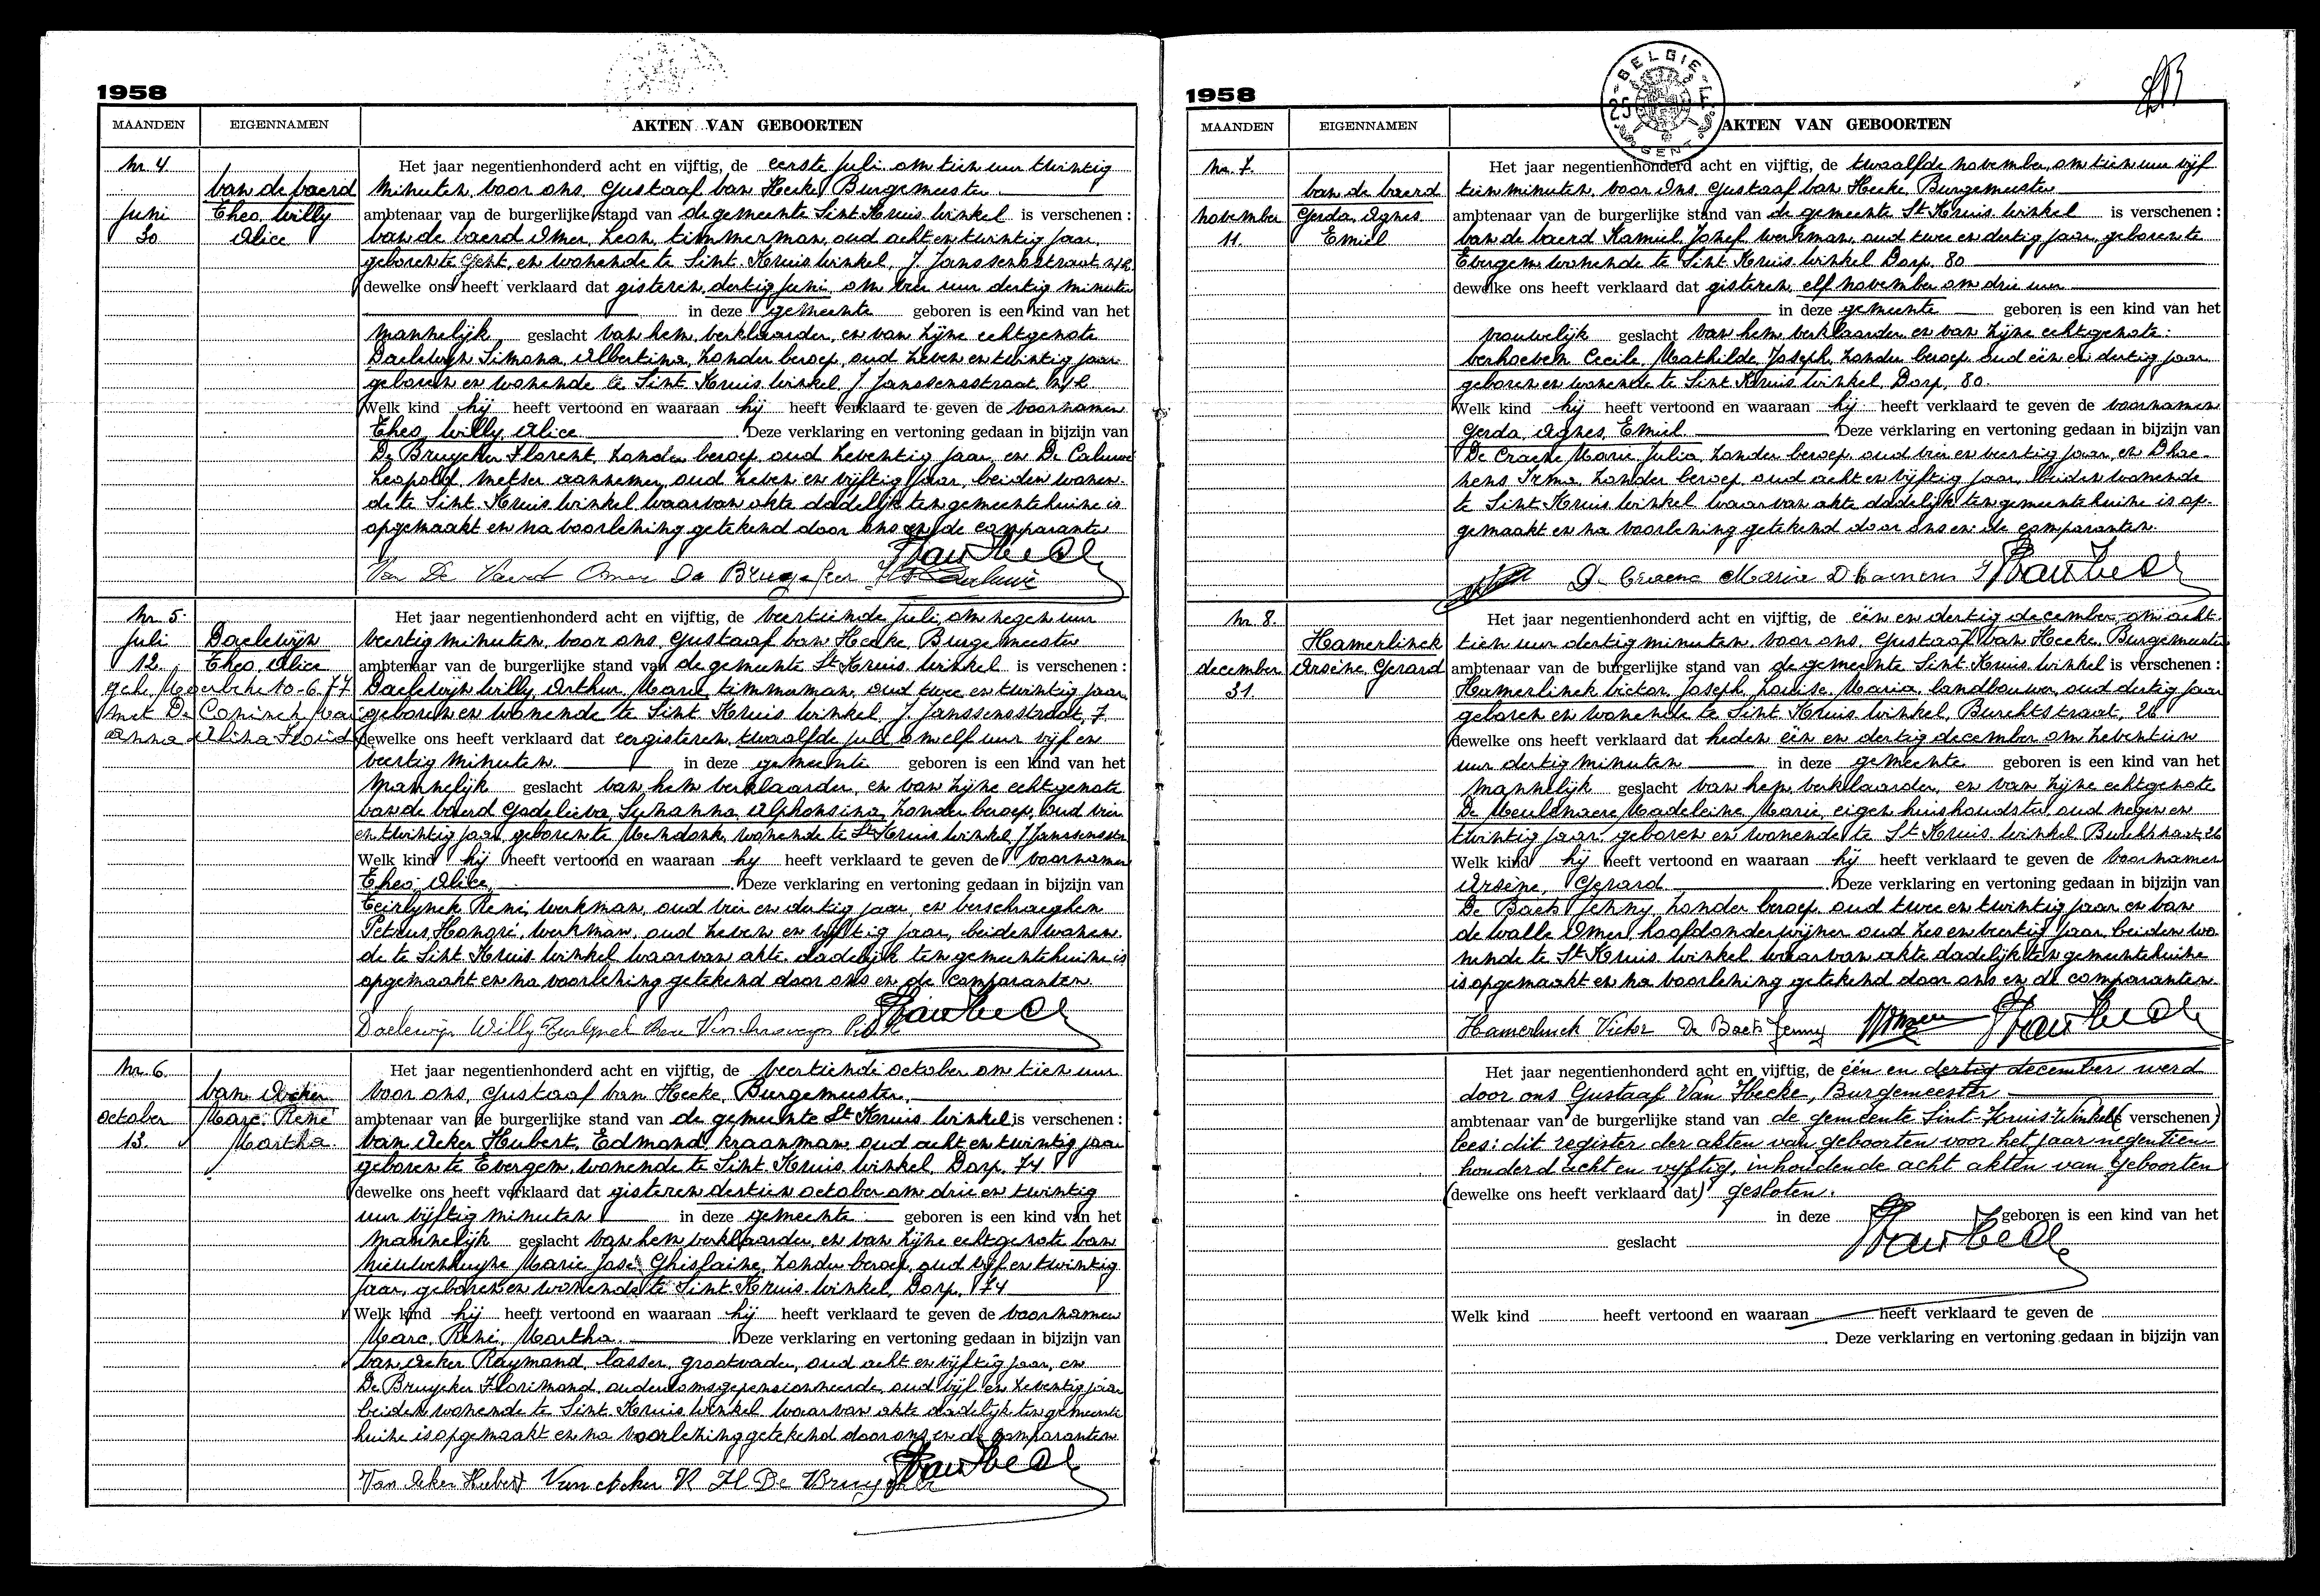 1958
MAANDEN EIGENNAMEN AKTEN VAN GEBOORTEN
Nr. 4. Het jaar negentienhonderd acht en vijftig, de eerste juli om tien uur twintig
Van de Vaerd minuten, voor ons, Gustaaf Van Hecke, Burgemeester
Juni Theo, Willy ambtenaar van de burgerlijke stand van de gemeente Sint Kruis Winkel is verschenen :
30 Alice Van de Vaerd Omer, Leon, timmerman, oud acht en twintig jaar,
geboren te Gent, en wonende te Sint. Kruis Winkel, J. Janssensstraat
dewelke ons heeft verklaard dat gisteren, dertig juni, om vier uur dertig minuten
in deze gemeente geboren is een kind van het
mannelijk geslacht van hem, verklaarder, en van zijne echtgenote
Daelwijn Simona, Albertina, zonder beroep, oud zeven en twintig jaar
geboren en wonende te Sint. Kruis Winkel, J. Janssensstraat,
Welk kind hij heeft vertoond en waaraan hij heeft verklaard te geven de voornamen
Theo, Willy, Alice Deze verklaring en vertoning gedaan in bijzijn van
De Bruycker Florent, zonder beroep, oud zeventig jaar, en De Caluwé
Leopold, metser aannemer, oud zeven en vijftig jaar, beiden wonen-
de te Sint. Kruis Winkel waarvan akte dadelijk ten gemeentehuize is
opgemaakt en na voorlezing getekend door ons en de comparanten
Van De Vaerd Omer De Bruycker
Nr. 5. Het jaar negentienhonderd acht en vijftig, de veertiende juli, om negen uur
Juli Daelwijn veertig minuten, voor ons, Gustaaf Van Hecke, Burgemeester
12 Theo, Alice ambtenaar van de burgerlijke stand van de gemeente St Kruis Winkel is verschenen :
geh. Moerbeke 10-6.77 Daelwijn Willy, Arthur, Marie, timmerman, oud twee en twintig jaar
met De Coninck geboren en wonende te Sint Kruis Winkel, J. Janssensstraat, 7
Anna Alina dewelke ons heeft verklaard dat eergisteren, twaalfde juli om elf uur vijf en
veertig minuten. in deze gemeente geboren is een kind van het
mannelijk geslacht van hem verklaarder, en van zijne echtgenote
Van de Vaerd Godelieva, Suzanna, Alphonsina, zonder beroep, oud vier
en twintig jaar, geboren te Mendonk, wonende te St Kruis Winkel, J Janssensstr
Welk kind hij heeft vertoond en waaraan hy heeft verklaard te geven de voornamen
Theo, Alice, Deze verklaring en vertoning gedaan in bijzijn van
Teirlynck René, werkman, oud vier en dertig jaar, en Verschraeghen
Petrus, Honoré, werkman, oud zeven en vijftig jaar, beiden wonen-
de te Sint. Kruis Winkel waarvan akte dadelijk ten gemeentehuize is
opgemaakt en na voorlezing getekend door ons en de comparanten
Daelewijn Willy Teirlynck Rene
Nr. 6. Het jaar negentienhonderd acht en vijftig, de veertiende october om tien uur
Van Acker voor ons, Gustaaf Van Hecke, Burgemeester,
october Marc. René ambtenaar van de burgerlijke stand van de gemeente St Kruis Winkel is verschenen :
13. Martha Van Acker Hubert, Edmond, kraanman, oud acht en twintig jaar
geboren te Evergem, wonende te Sint. Kruis Winkel, Dorp, 74
dewelke ons heeft verklaard dat gisteren dertien october om drie en twintig
uur vijftig minuten in deze gemeente geboren is een kind van het
mannelijk geslacht van hem verklaarder, en van zijne echtgenote Van
Nieuwenhuyse Marie José Ghislaine, zonder beroep, oud vijf en twintig
jaar, geboren en wonende te Sint. Kruis Winkel, Dorp, 74
Welk kind hij heeft vertoond en waaraan hij heeft verklaard te geven de voornamen
Marc, René, Martha. Deze verklaring en vertoning gedaan in bijzijn van
Van Acker Raymond, lasser, grootvader, oud acht en vijftig jaar, en
De Bruycker Florimond, ouderdomsgepensionneerde, oud vijf en zeventig jaar
beiden wonende te Sint. Kruis Winkel waarvan akte dadelijk ten gemeente
huize is opgemaakt en na voorlezing getekend door ons en de comparanten
Van Acker Hubert Van Acker R Fl De Bruycker
1958
BELGIE 25 F GENT
MAANDEN EIGENNAMEN AKTEN VAN GEBOORTEN
Nr. 7. Het jaar negentienhonderd acht en vijftig, de twaalfde november, om tien uur vijf
Van de Vaerd tien minuten, voor ons, Gustaaf Van Hecke, Burgemeester
november Gerda, Agnes ambtenaar van de burgerlijke stand van de gemeente St Kruis Winkel is verschenen :
11. Emiel Van de Vaerd Kamiel, Jozef, werkman, oud twee en dertig jaar, geboren te
Evergem wonende te Sint. Kruis Winkel Dorp, 80
dewelke ons heeft verklaard dat gisteren, elf november om drie uur
in deze gemeente geboren is een kind van het
vrouwelijk geslacht van hem, verklaarder en van zijne echtgenote:
Verhoeven Cecile, Mathilde, Joseph, zonder beroep, oud één en dertig jaar
geboren en wonende te Sint Kruis Winkel, Dorp, 80.
Welk kind hij heeft vertoond en waaraan hij heeft verklaard te geven de voornamen
Gerda, Agnes, Emiel Deze verklaring en vertoning gedaan in bijzijn van
De Craene, Marie, Julia, zonder beroep, oud vier en veertig jaar, en Dhae-
nens Irma, zonder beroep, oud acht en vijftig jaar, beiden wonende
te Sint. Kruis Winkel waarvan akte dadelijk ten gemeentehuize is op-
gemaakt en na voorlezing getekend door ons en de comparanten.
De Craene Maria Dhaenens I
Nr. 8. Het jaar negentienhonderd acht en vijftig, de één en dertig december, om acht
Hamerlinck tien uur dertig minuten, voor ons, Gustaaf Van Hecke, Burgemeester
december Arsène, Gerard ambtenaar van de burgerlijke stand van de gemeente Sint. Kruis Winkel is verschenen :
31. Hamerlinck Victor, Joseph, Louise, Maria, landbouwer, oud dertig jaar
geboren en wonende te Sint Kruis Winkel, Burchtstraat, 26
dewelke ons heeft verklaard dat heden één en dertig december om zeventien
uur dertig minuten in deze gemeente geboren is een kind van het
mannelijk geslacht van hem, verklaarder, en van zijne echtgenote
De Meulenaere Madeleine, Marie, eigen huishoudster, oud negen en
twintig jaar, geboren en wonende te St Kruis Winkel, Burchtstraat, 26
Welk kind hij heeft vertoond en waaraan hij heeft verklaard te geven de voornamen
Arsène, Gerard Deze verklaring en vertoning gedaan in bijzijn van
De Baets Jenny, zonder beroep, oud twee en twintig jaar en Van
de Walle Omer, hoofdonderwijzer, oud zes en veertig jaar, beiden wo-
nende te St Kruis Winkel waarvan akte dadelijk ten gemeentehuize
is opgemaakt en na voorlezing getekend door ons en de comparanten.
Hamerlinck Victor De Baets Jenny
Het jaar negentienhonderd acht en vijftig, de één en dertig december werd
door ons Gustaaf Van Hecke, Burgemeester
ambtenaar van de burgerlijke stand van de gemeente Sint-Kruis-Winkel (is verschenen)
lees: dit register der akten van geboorten voor het jaar negentien-
honderd acht en vyftig, inhoudende acht akten van geboorten
(dewelke ons heeft verklaard dat) gesloten.
in deze geboren is een kind van het
geslacht
Welk kind heeft vertoond en waaraan heeft verklaard te geven de
Deze verklaring en vertoning gedaan in bijzijn van